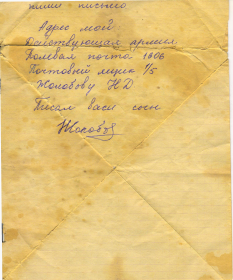 ними - письмо
Адрес мой:
Действующая армия
Полевая почта 1606
Почтовый ящик 1/5
Жолобову НД
Писал ваш сын
Жолобов